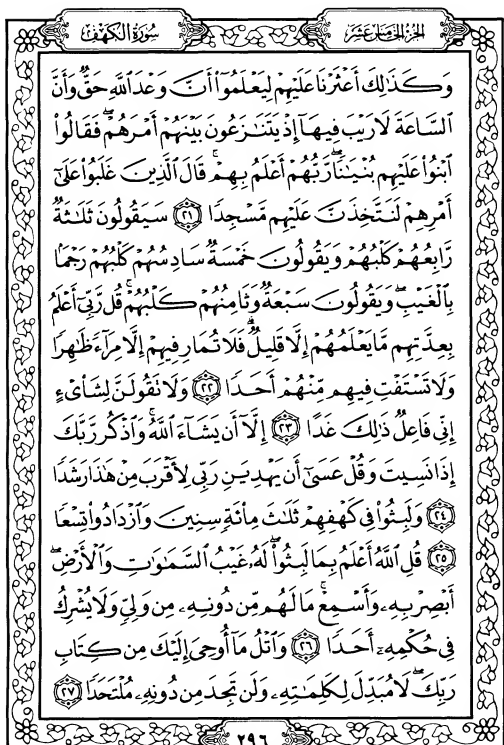 سُورَةُ الكَهْفِ الجُزْءُ الخَامِسَ عَشَرَ
وَكَذَٰلِكَ أَعْثَرْنَا عَلَيْهِمْ لِيَعْلَمُوٓا۟ أَنَّ وَعْدَ ٱللَّهِ حَقٌّ وَأَنَّ
ٱلسَّاعَةَ لَا رَيْبَ فِيهَآ إِذْ يَتَنَٰزَعُونَ بَيْنَهُمْ أَمْرَهُمْ ۖ فَقَالُوا۟
ٱبْنُوا۟ عَلَيْهِم بُنْيَٰنًا ۖ رَّبُّهُمْ أَعْلَمُ بِهِمْ ۚ قَالَ ٱلَّذِينَ غَلَبُوا۟ عَلَىٰٓ
أَمْرِهِمْ لَنَتَّخِذَنَّ عَلَيْهِم مَّسْجِدًا ٢١ سَيَقُولُونَ ثَلَٰثَةٌ
رَّابِعُهُمْ كَلْبُهُمْ وَيَقُولُونَ خَمْسَةٌ سَادِسُهُمْ كَلْبُهُمْ رَجْمًۢا
بِٱلْغَيْبِ ۖ وَيَقُولُونَ سَبْعَةٌ وَثَامِنُهُمْ كَلْبُهُمْ ۚ قُل رَّبِّىٓ أَعْلَمُ
بِعِدَّتِهِم مَّا يَعْلَمُهُمْ إِلَّا قَلِيلٌ ۗ فَلَا تُمَارِ فِيهِمْ إِلَّا مِرَآءً ظَٰهِرًا
وَلَا تَسْتَفْتِ فِيهِم مِّنْهُمْ أَحَدًا ٢٢ وَلَا تَقُولَنَّ لِشَا۟ىْءٍ
إِنِّى فَاعِلٌ ذَٰلِكَ غَدًا ٢٣ إِلَّآ أَن يَشَآءَ ٱللَّهُ ۚ وَٱذْكُر رَّبَّكَ
إِذَا نَسِيتَ وَقُلْ عَسَىٰٓ أَن يَهْدِيَنِ رَبِّى لِأَقْرَبَ مِنْ هَٰذَا رَشَدًا
٢٤ وَلَبِثُوا۟ فِى كَهْفِهِمْ ثَلَٰثَ مِا۟ئَةٍ سِنِينَ وَٱزْدَادُوا۟ تِسْعًا
٢٥ قُلِ ٱللَّهُ أَعْلَمُ بِمَا لَبِثُوا۟ ۖ لَهُۥ غَيْبُ ٱلسَّمَٰوَٰتِ وَٱلْأَرْضِ ۖ
أَبْصِرْ بِهِۦ وَأَسْمِعْ ۚ مَا لَهُم مِّن دُونِهِۦ مِن وَلِىٍّ وَلَا يُشْرِكُ
فِى حُكْمِهِۦٓ أَحَدًا ٢٦ وَٱتْلُ مَآ أُوحِىَ إِلَيْكَ مِن كِتَابِ
رَبِّكَ ۖ لَا مُبَدِّلَ لِكَلِمَٰتِهِۦ وَلَن تَجِدَ مِن دُونِهِۦ مُلْتَحَدًا ٢٧
٢٩٦